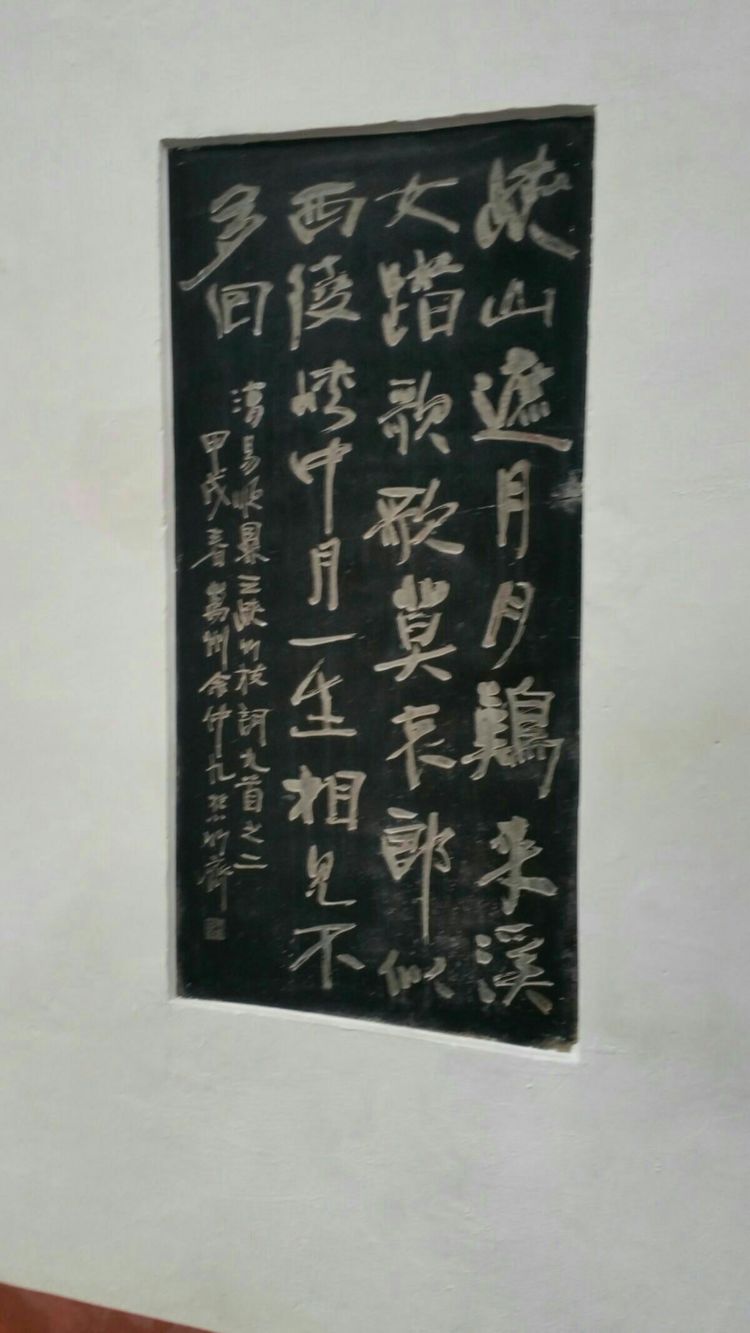 峡山遮月月鷄来溪
女踏歌歌莫哀郎似
西陵峡中月一生相见不
多回
清易顺鼎三峡竹枝词九首之二
甲戌春萬州余仲九 竹齋